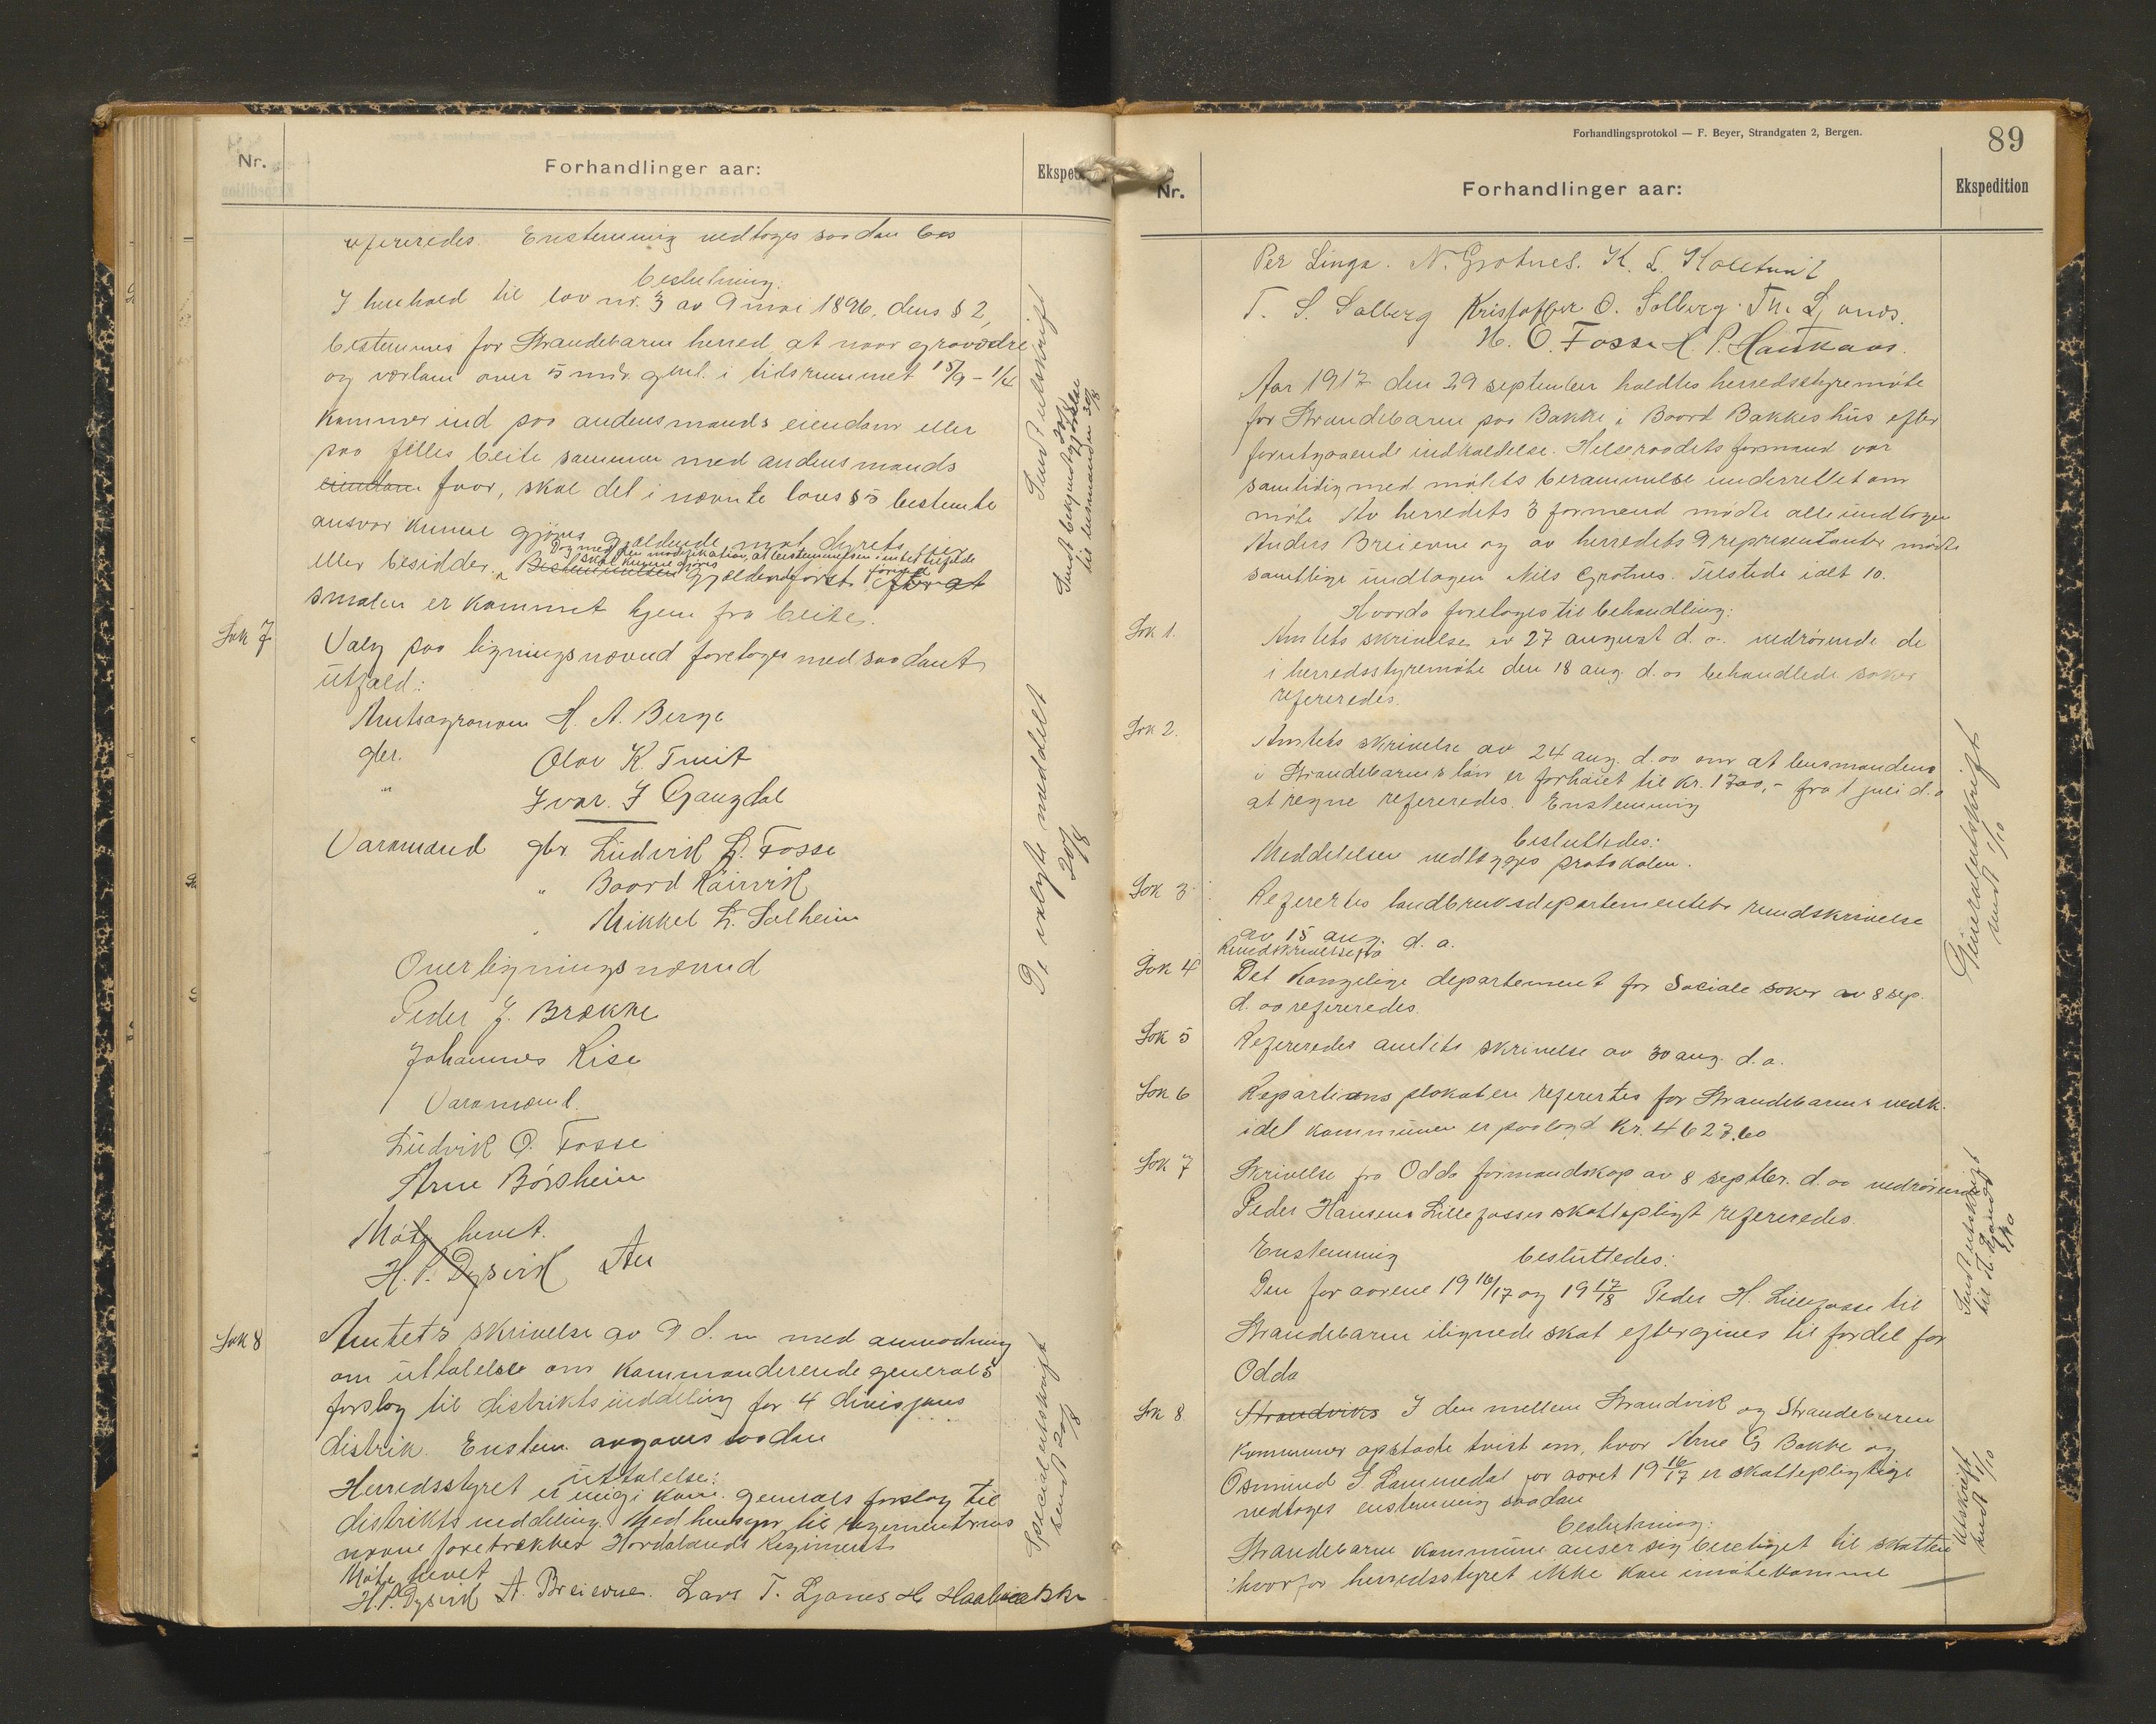 Nr.
Forhandlinger aar:
refereredes. Enstemmig vedtoges saadan bes
beslutning:
I henhold til lov nr. 3 av 9 mai 1896, dens § 2,
bestemmes for Strandebarm herred, at naar gravædre
og værlam over 5 mdr gml. i tidsrummet 15/9 - 1/4
kommer ind paa andensmands eiendom eller
paa fælles beite sammen med andens mands
eiendom faar, skal det i nævnte lovs § 5 bestemte
ansvar kunne gjøres gjældende mot dyrets eier
Dog med den modifikation, at bestemmelsen i intet tilfælde
skal kunne gjøres
eller besidder. Bestemmelsen gjældende først førend efter at
smalen er kommet hjem fra beite.
Sak 7
Valg paa ligningsnævnd foretoges med saadant
utfald:
Amtsagronom H. A. Berge
gbr. Olav K. Tveit
" Ivar. J Gangdal
Varamænd gbr. Ludvik L. Fosse
" Baard Råirvik
" Mikkel L. Solheim
Overligningsnævnd
Peder J. Brekke
Johannes Rise
Varamænd.
Ludvik O. Fosse
Arne Børsheim
Møte hevet.
H. P. Dysvik An
Sak 8
Amtets skrivelse av 9 d. m med anmodning
om uttalelse om kommanderende generals
forslag til distriktsinddeling for 4 divisjons
distrik. Enstem. avgaves saadan
uttalelse:
Herredsstyret er enig i kom. generals forslag til
distriktsinddeling. Med hensyn til regimentsnes
navne foretrækkes Hordalands Regiment
Møte hevet
H. P. Dysvik A. Breievne. Lars T. Ljones H Haalnæbakke
Ekspe
Sendt utskrift
Sendt bekjendtgjørelse
til lensmanden 30/8
De valgte meddelt
20/8
Special utskrift
sendt 20/8
Forhandlingsprotokol — F. Beyer, Strandgaten 2, Bergen.
89
Nr.
Forhandlinger aar:
Ekspedition
Per Linga. N. Grotnes. K. L. Koltveit
T. S. Solberg Kristoffer O. Solberg. Th. Ljones.
N. O. Fosse H P. Haukaas.
Aar 1917 den 29 september holdtes herredsstyremøte
for Strandebarm paa Bakke i Baard Bakkes hus efter
forutgaaende indkaldelse. Helseraadets formand var
samtidig med møtets berammelse underrettet om
møte. Av herredets 3 formænd mødte alle undtagen
Anders Breievne og av herredets 9 representanter mødte
samtlige undtagen Nils Grotnes. Tilstede ialt 10.
Hvorda foretoges til behandling:
Sak 1.
Amtets skrivelse av 27 august d. a. vedrørende de
i herredsstyremøte den 18 aug. d. aa behandlede saker
refereredes.
Sak 2.
Amtets skrivelse av 24 aug. d. aa om at lensmandens
i Strandebarms løn er forhøiet til kr. 1700,- fra 1 juli d. a
at regne refereredes. Enstemmig
besluttedes:
Meddelelsen vedlægges protokolen.
Sak 3
Referertes landbruksdepartementets rundskrivelse
av 15 aug. d. a.
Sak 4
Rundskrivelse fra
Det Kongelige departement for Sociale saker av 8 sep.
d. aa refereredes.
Sak 5
Refereredes amtets skrivelse av 30 aug. d. a.
Sak 6
Repartions plakaten referertes for Strandebarms vedk.
idet kommunen er paalagd kr. 4627,60
Sak 7
Skrivelse fra Odda formandskap av 8 septbr. d. aa vedrørende
Peder Hansens Lillefosses skattepligt refereredes.
Enstemmig besluttedes:
Den for aarene 1916/17 og 1917/18 Peder H. Lillefosse til
Strandebarm ilignede skat eftergives til fordel for
Odda
Sak 8
Strandviks I den mellem Strandvik og Strandebarm
kommuner opstaate tvist om, hvor Arne G Bakke og
Osmund S. Lammedal for aaret 1916/17 er skattepligtige
vedtoges enstemmig saadan
beslutning:
Strandebarm kommune anser sig berettiget til skatten
hvorfor herredsstyret ikke kan imøtekomme
Generalutskrift
sendt 1/10
Sendt utskrift
Utskrift
sendt 1/10